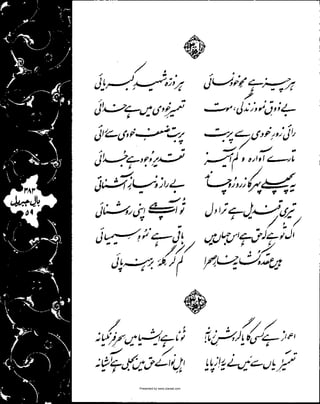 ہر چیز ہے محوِ خود نمائی ہر ذرّہ شہیدِ کبریائی
بے ذوقِ نمود زندگی، موت تعمیرِ خودی میں ہے خدائی
رائی زورِ خودی سے پربت پربت ضعفِ خودی سے رائی
تارے آوارہ و کم آمیز تقدیرِ وجود ہے جدائی
یہ پچھلے پہر کا زرد رُو چاند بے راز و نیازِ آشنائی
تیری قندیل ہے ترا دل تُو آپ ہے اپنی روشنائی
اک تُو ہے کہ حق ہے اس جہاں میں باقی ہے نمودِ سیمیائی
ہیں عقدہ کشا یہ خارِ صحرا کم کر گلۂ برہنہ پائی
اعجاز ہے کسی کا یا گردشِ زمانہ ٹوٹا ہے ایشیا میں سحرِ فرنگیانہ
تعمیرِ آشیاں سے میں نے یہ راز پایا اہلِ نوا کے حق میں بجلی ہے آشیانہ
۳۸۳
بالِ جبریل
۵۹
Presented by www.ziaraat.com